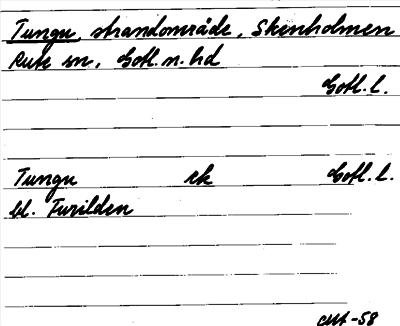 Tungu, strandområde, Skenholmen
Rute sn, Gotl. n. hd
Gotl. l.
Tungu ek Gotl. l.
bl. Furilden
CMt -58